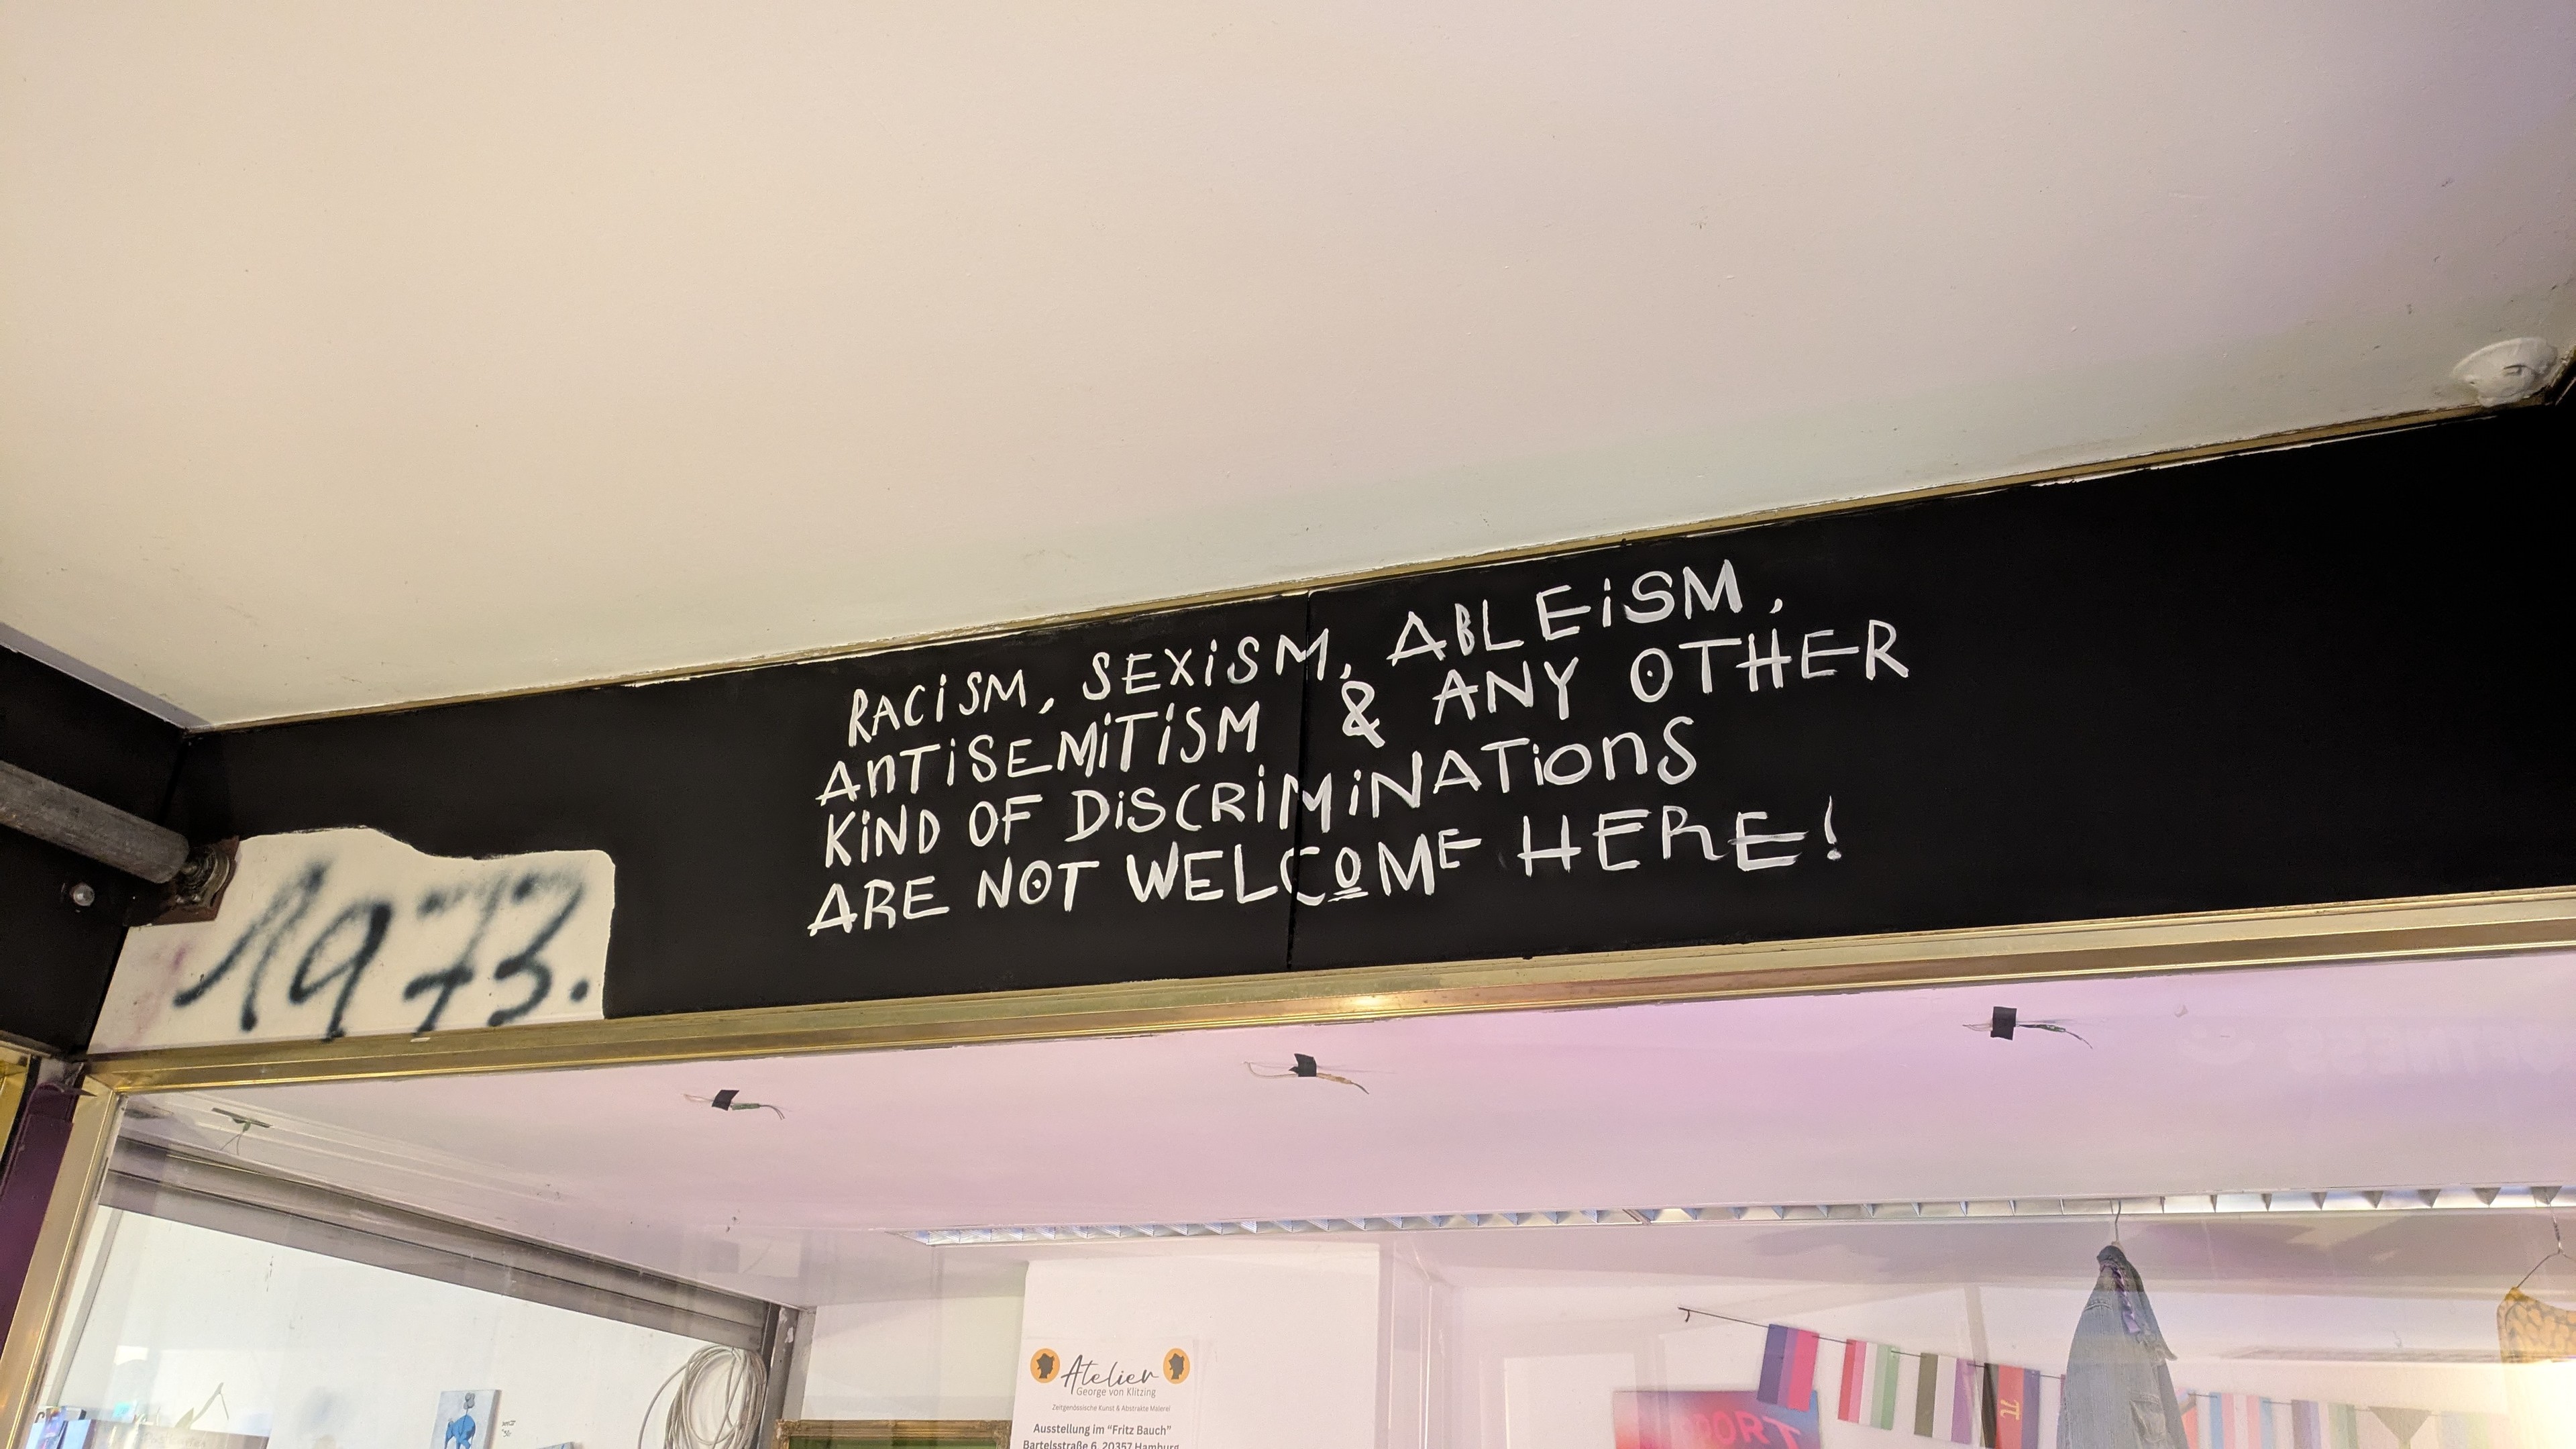 RACiSM, SEXiSM, ABLEiSM,
ANTiSEMiTiSM & ANY OTHER
KiND OF DiSCRiMiNATiONS
ARE NOT WELCOME HERE!
1973.
Atelier
George von Klitzing
Zeitgenössische Kunst & Abstrakte Malerei
Ausstellung im "Fritz Bauch"
Bartelsstraße 6, 20357 Hamburg